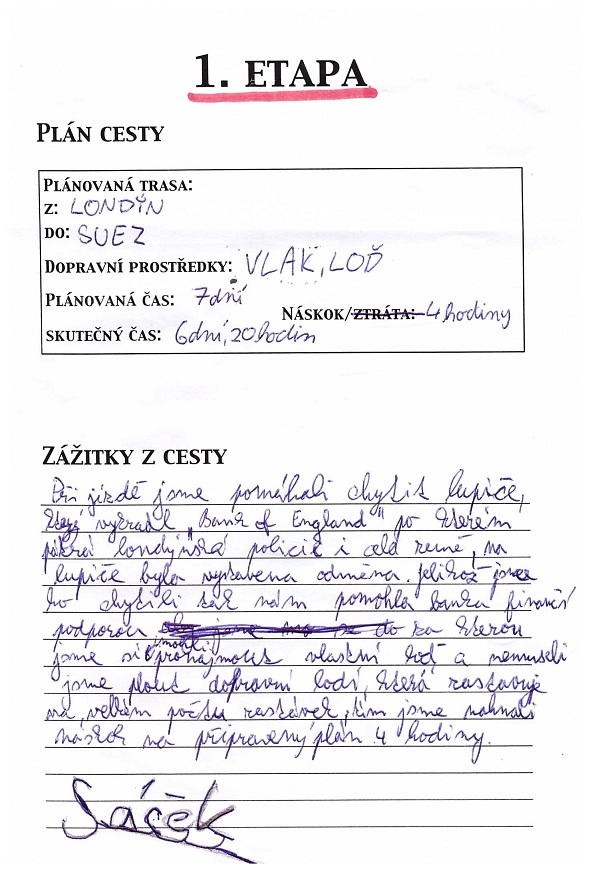 1. ETAPA
PLÁN CESTY
PLÁNOVANÁ TRASA:
Z: LONDÝN
DO: SUEZ
DOPRAVNÍ PROSTŘEDKY: VLAK, LOĎ
PLÁNOVANÁ ČAS: 7 dní
NÁSKOK/ZTRÁTA: 4 hodiny
SKUTEČNÝ ČAS: 6 dní, 20 hodin
ZÁŽITKY Z CESTY
Při jízdě jsme pomáhali chytit lupiče,
který vykradl "Bank of England" po kterém
pátrá londýnská policie i celá země, na
lupiče byla vystavena odměna. Jelikož jsme
ho chytili tak nám pomohla banka finanční
podporou za kterou
jsme si mohli pronajmout vlastní loď a nemuseli
jsme plout dopravní lodí, která zastavuje
na velkém počtu zastávek, tím jsme nahnali
náskok na připravený plán 4 hodiny.
Sáček